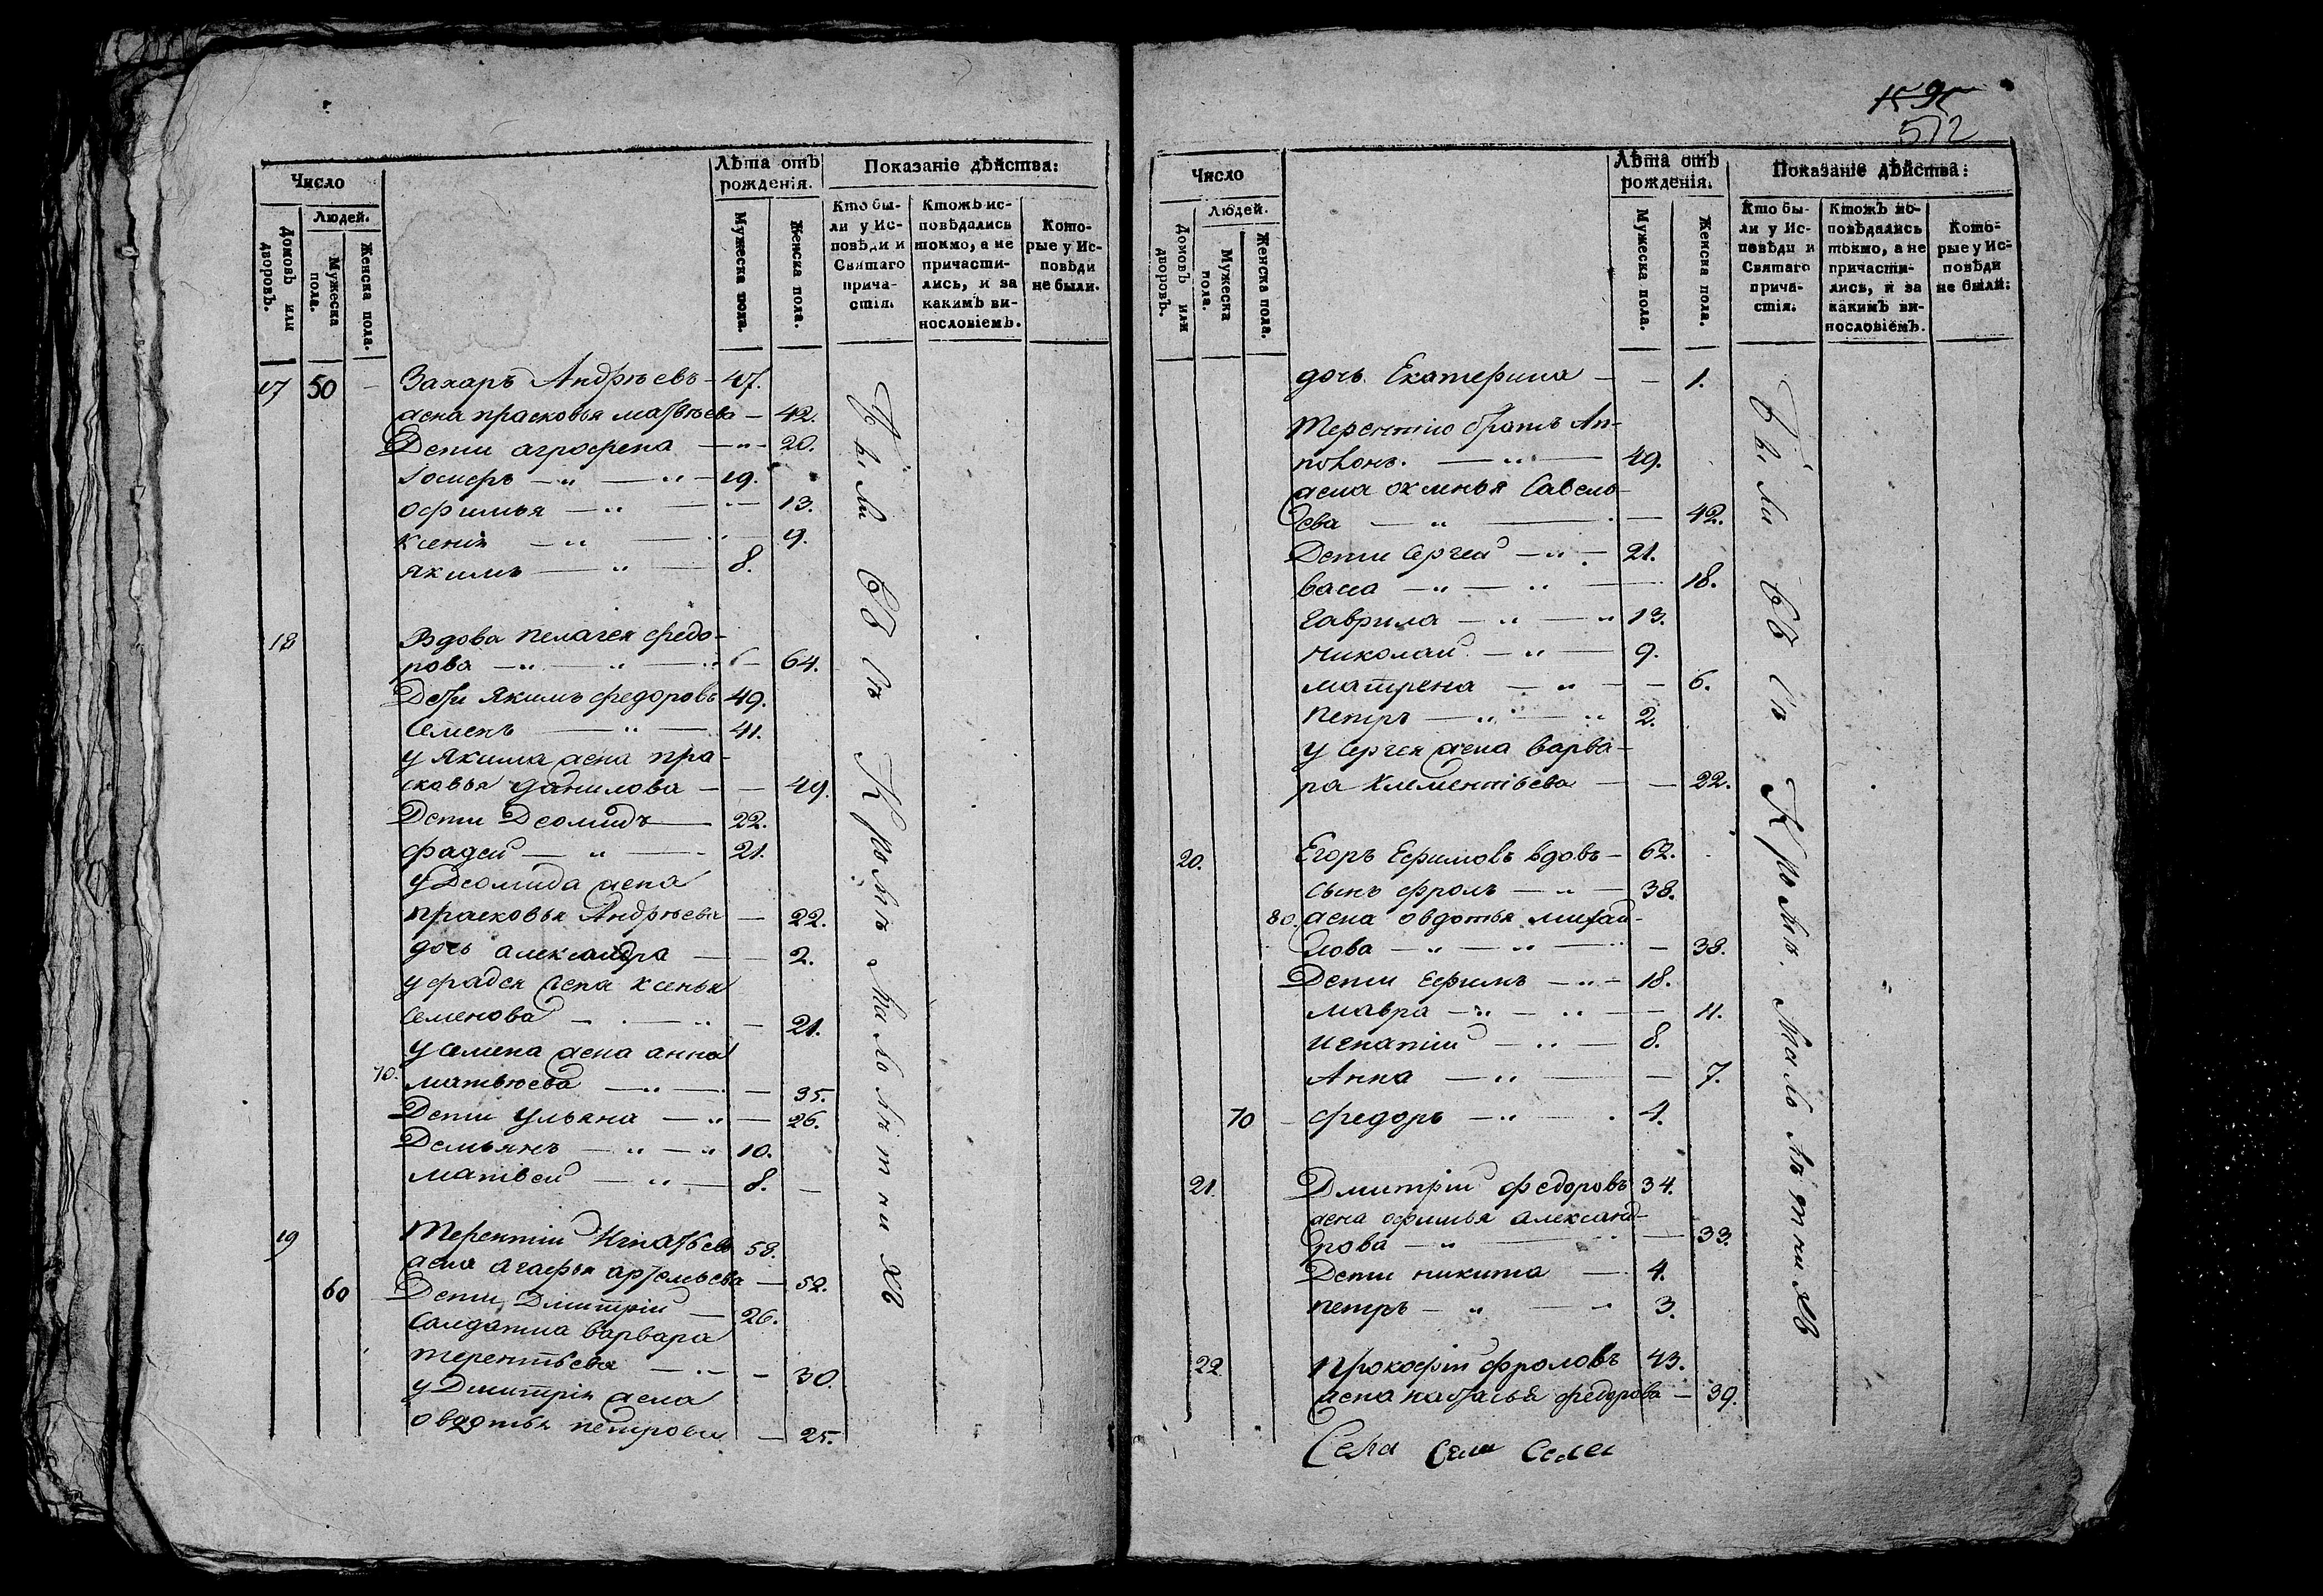 Число
Людей.
Домовъ или дворовъ.
Мужеска пола.
Женска пола.
Лѣта отъ рожденія.
Мужеска пола.
Женска пола.
Показаніе дѣйства:
Кто бы-
ли у Ис-
повѣди и
Святаго
прича-
стія.
Ктожъ ис-
повѣдались
токмо, а не
причасти-
лись, и за
какимъ ви-
нословіемъ.
Кото-
рые у Ис-
повѣди
не были.
17 50 – Захаръ Андрѣевъ – 47.
жена прасковья матвѣева – 42.
Дети агрофена – 20.
Іосифъ – 19.
офимья – 13.
ксенія – 9.
якимъ – 8.
18 Вдова пелагея федо-
рова – 64.
Дети якимъ федоровъ 49.
Семенъ – 41.
у якима жена пра-
сковья данилова – 49.
Дети Деомидъ – 22.
фадей – 21.
у Деомида жена
прасковья Андрѣева – 22.
дочь александра – 2.
у фадея жена ксенья
Семенова – 21.
у семена жена анна
70. матвѣева – 35.
Дети ульяна – 26.
Демьянъ – 10.
матвей – 8.
19 Терентій Игнатьевъ 58.
жена агафья артемьева – 52.
60 Дети Дмитрій – 26.
Салдатка варвара
терентьева – 30.
у Дмитрія жена
овдотья петрова – 25.
Были Всѣ Кромѣ Малолѣтнихъ
572
Число
Людей.
Домовъ или дворовъ.
Мужеска пола.
Женска пола.
Лѣта отъ рожденія.
Мужеска пола.
Женска пола.
Показаніе дѣйства:
Кто бы-
ли у Ис-
повѣди и
Святаго
прича-
стія.
Ктожъ ис-
повѣдались
токмо, а не
причасти-
лись, и за
какимъ ви-
нословіемъ.
Кото-
рые у Ис-
повѣди
не были.
дочь Екатерина – 1.
Терентию братъ Ан-
49.
жена Савель-
ева – 42.
Дети Сергей – 21.
18.
Гаврила – 13.
николай – 9.
матрена – 6.
петръ – 2.
у сергея жена варва-
ра климентьева – 22.
20. Егоръ Ефимовъ вдовъ – 62.
сынъ фролъ – 38.
80. жена овдотья михай-
лова – 38.
Дети Ефимъ – 18.
мавра – 11.
игнатій – 8.
Анна – 7.
70 – федоръ – 4.
21. Дмитрій федоровъ 34.
жена офимья александ-
рова – 33.
Дети никита – 4.
петръ – 3.
22 Прокофій фроловъ 43.
жена наталья федорова – 39.
Были Всѣ Кромѣ Малолѣтнихъ
Села Села Села